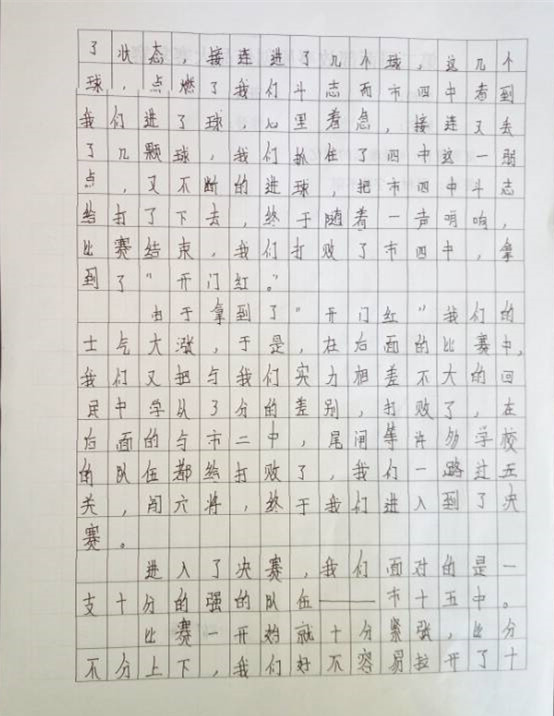 了状态，接连进了几个球，这几个
球，点燃了我们斗志而市四中看到
我们进了球，心里着急，接连又丢
了几颗球，我们抓住了四中这一弱
点，又不断的进球，把市四中斗志
给打了下去，终于随着一声哨响，
比赛结束，我们打败了市四中，拿
到了“开门红。”
由于拿到了“开门红”我们的
士气大涨，于是，在后面的比赛中，
我们又把与我们实力相差不大的回
民中学从3分的差别，打败了，在
后面的与市二中，尾闸等许多学校
的队伍都给打败了，我们一路过五
关，闯六将，终于我们进入到了决
赛。
进入了决赛，我们面对的是一
支十分的强的队伍——市十五中。
比赛一开始就十分紧张，比分
不分上下，我们好不容易拉开了十